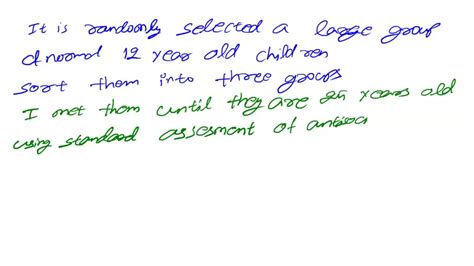 It is randomly selected a large group
of normal 12 year old children
sort them into three groups
I met them until they are years old
using standard assesment of antisoc